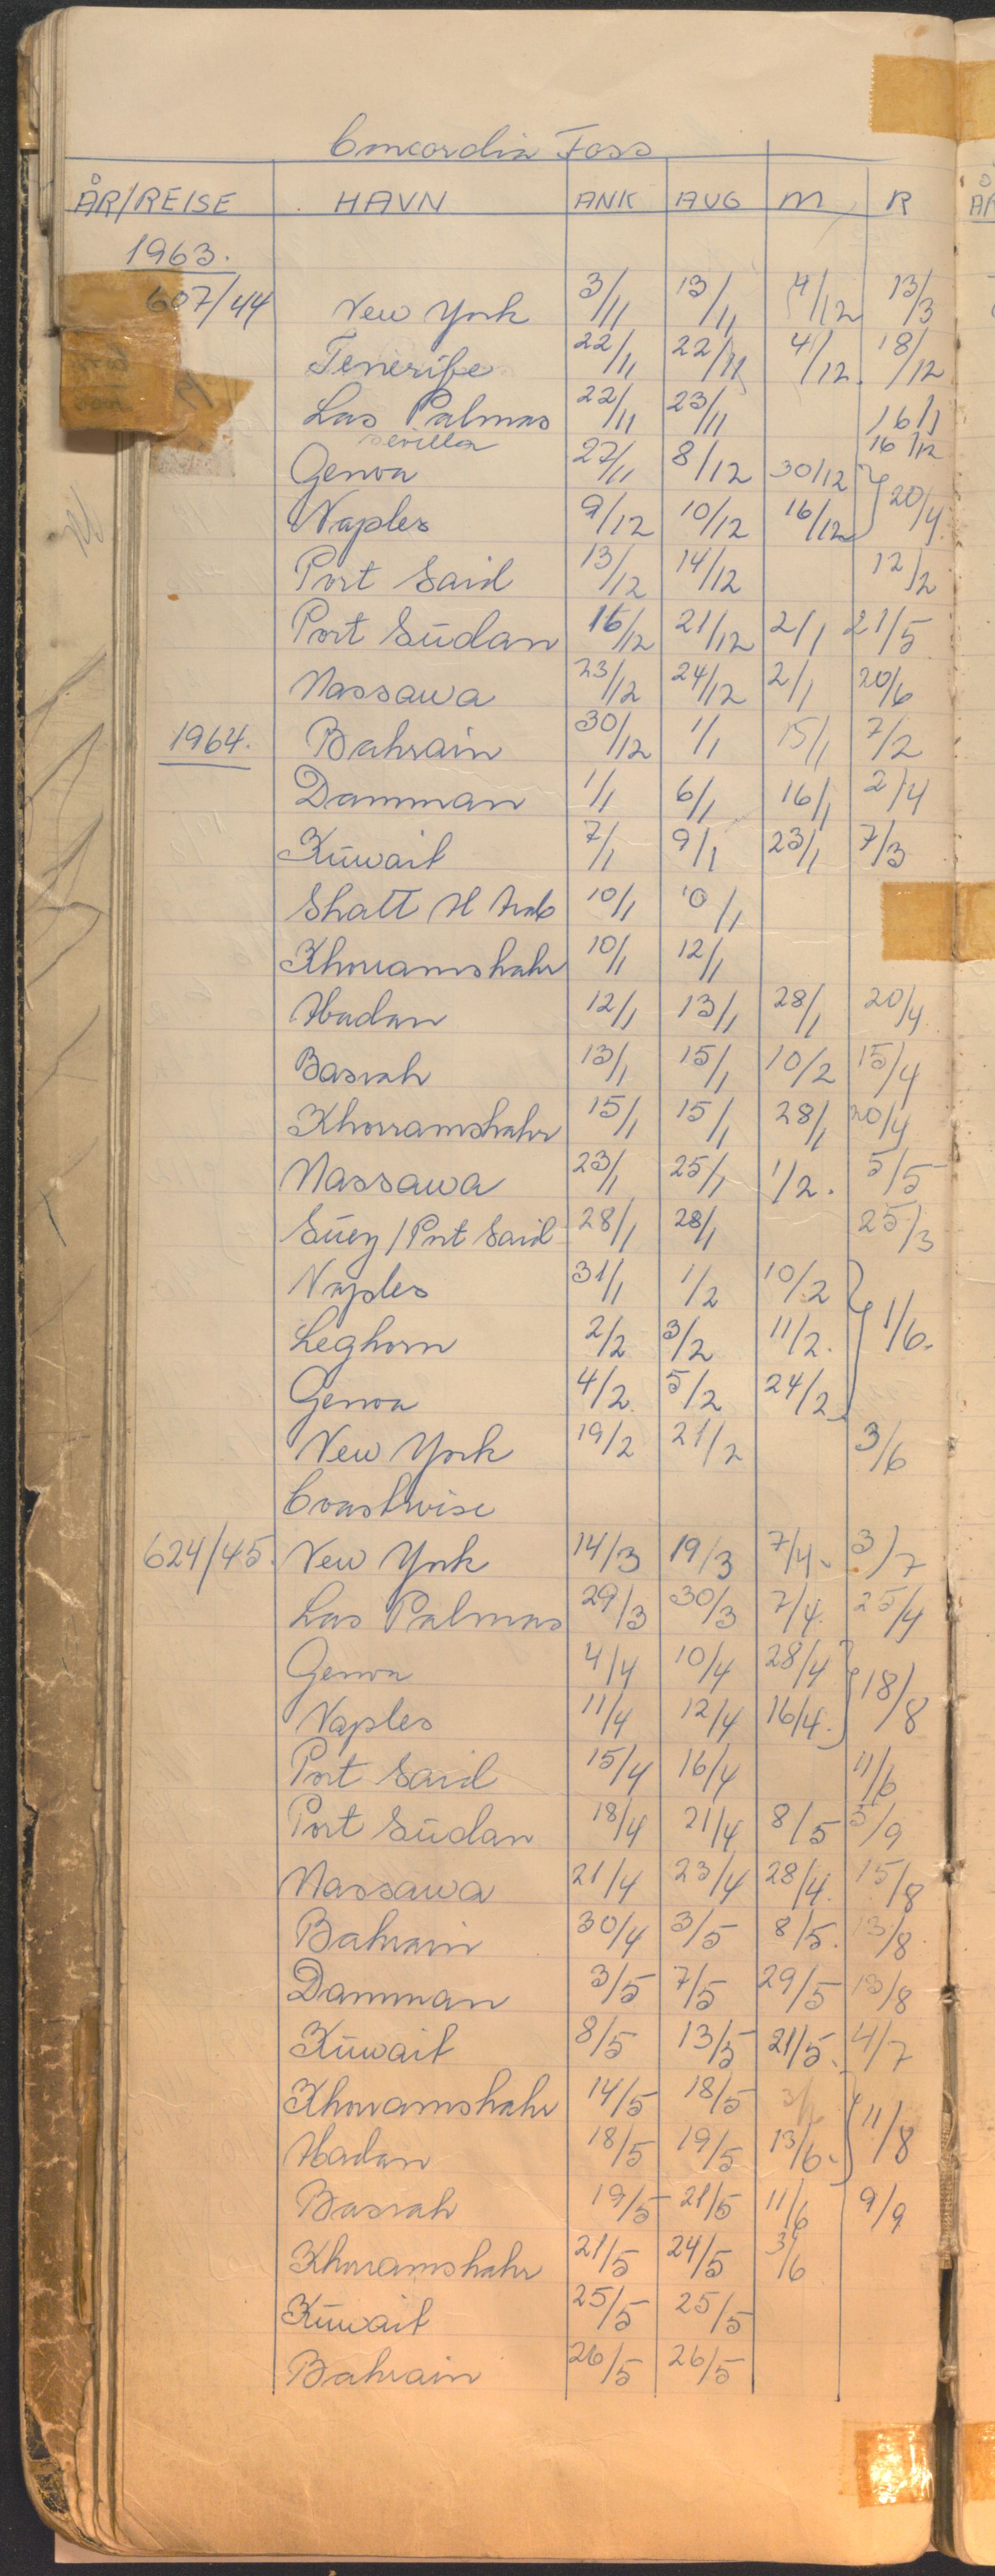 Concordia Foss
ÅR/REISE HAVN ANK AVG M R
1963.
607/44 New York 3/11 13/11 4/12 13/3
Tenerife 22/11 22/11 4/12. 18/12
Las Palmas 22/11 23/11 16/1
Sevilla 16/12
Genoa 27/11 8/12 30/12
Naples 9/12 10/12 16/12 } 20/4.
Port Said 13/12 14/12 12/2
Port Sudan 16/12 21/12 2/1 21/5
Massawa 23/12 24/12 2/1 20/6
1964. Bahrain 30/12 1/1 15/1 7/2
Damman 1/1 6/1 16/1 2/4
Kuwait 7/1 9/1 23/1 7/3
Shatt Al Arab 10/1 10/1
Khorramshahr 10/1 12/1
Abadan 12/1 13/1 28/1 20/4
Basrah 13/1 15/1 10/2 15/4
Khorramshahr 15/1 15/1 28/1 20/4
Massawa 23/1 25/1 1/2. 5/5
Suez/Port Said 28/1 28/1 25/3
Naples 31/1 1/2 10/2
Leghorn 2/2 3/2 11/2. } 1/6.
Genoa 4/2. 5/2 24/2
New York 19/2 21/2 3/6
Coastwise
624/45. New York 14/3 19/3 7/4. 3/7
Las Palmas 29/3 30/3 7/4. 25/4
Genoa 4/4 10/4 28/4 } 18/8
Naples 11/4 12/4 16/4.
Port Said 15/4 16/4 11/6
Port Sudan 18/4 21/4 8/5 3/9
Massawa 21/4 23/4 28/4. 15/8
Bahrain 30/4 3/5 8/5. 13/8.
Damman 3/5 7/5 29/5 13/8
Kuwait 8/5 13/5 21/5. 4/7
Khorramshahr 14/5 18/5 } 11/8
Abadan 18/5 19/5 13/6.
Basrah 19/5 21/5 11/6 9/9
Khorramshahr 21/5 24/5 3/6
Kuwait 25/5 25/5
Bahrain 26/5 26/5